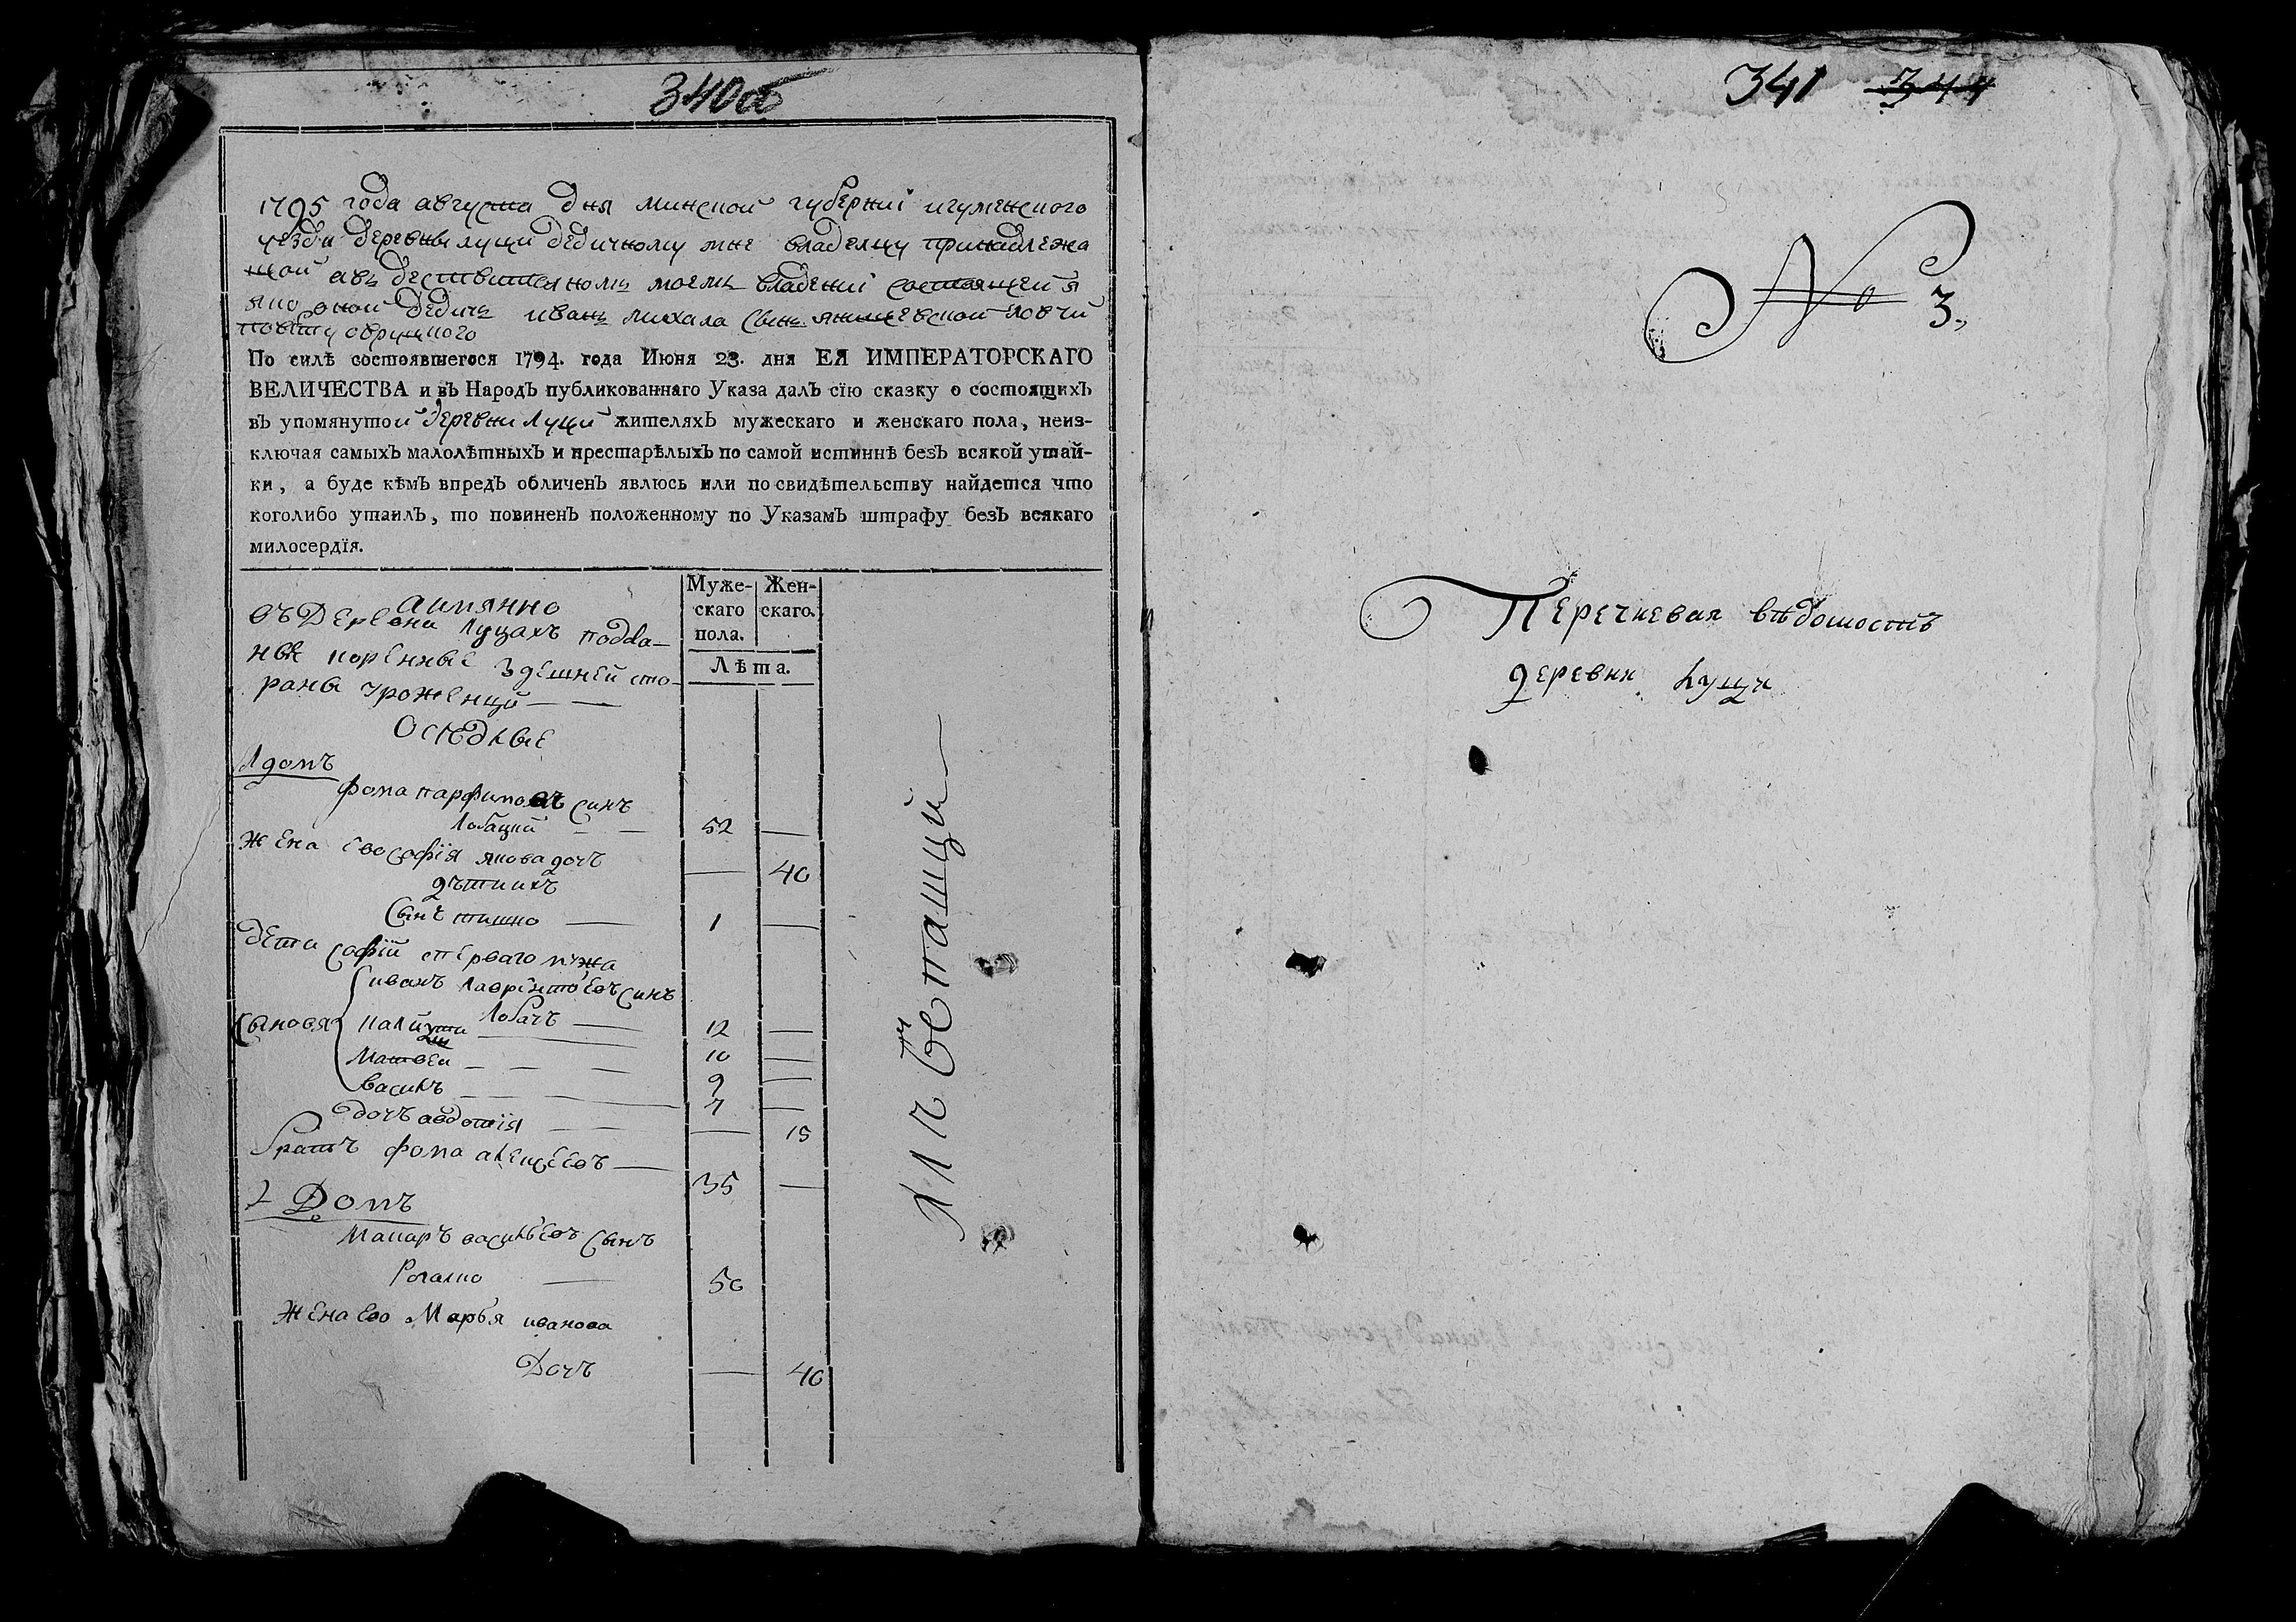 340об
1795 года августа дня минской губерниі игуменского
уезда деревны луци дедичному мне владелцу принадлежа
щой авъ дествителномъ моемъ владениі состоящей я
яко оной дедичъ иванъ михала сынъ ловчи
повету овруцкого
По силѣ состоявшегося 1794. года Июня 23. дня ЕЯ ИМПЕРАТОРСКАГО
ВЕЛИЧЕСТВА и въ Народъ публикованнаго Указа далъ сїю сказку о состоящихъ
въ упомянутой деревни Луци жителяхъ мужескаго и женскаго пола, неиз-
ключая самыхъ малолѣтныхъ и престарѣлыхъ по самой истиннѣ безъ всякой утай-
ки, а буде кѣмъ впредь обличенъ явлюсь или по свидѣтельству найдется что
коголибо утаилъ, то повиненъ положенному по Указамъ штрафу безъ всякаго
милосердїя.
Муже-скаго пола.
Жен-скаго.
Лѣта.
аимянно
въ Деревни Луцахъ подда-
ные коренные здешней сто-
раны уроженци
Оседлые
1 домъ
фома парфимовъ синъ
Лобацкий — 52 —
жена ево софїя якова дочъ — 40
дѣти ихъ
Сынъ тишко — 1 —
дети софїй спервого мужа
иванъ Лаврентьевъ синъ
Лобачъ — 12 —
Сыновя
10 —
Матвей — 9 —
василъ — 7 —
дочъ авдотїя — 15
братъ фома алексеевъ — 35 —
2 Домъ
Макаръ василъевъ сынъ
Рогалко — 50
жена ево Марья иванова
Дочъ — 40
341 344
№ 3.
Перечневая вѣдомость
деревни Луци